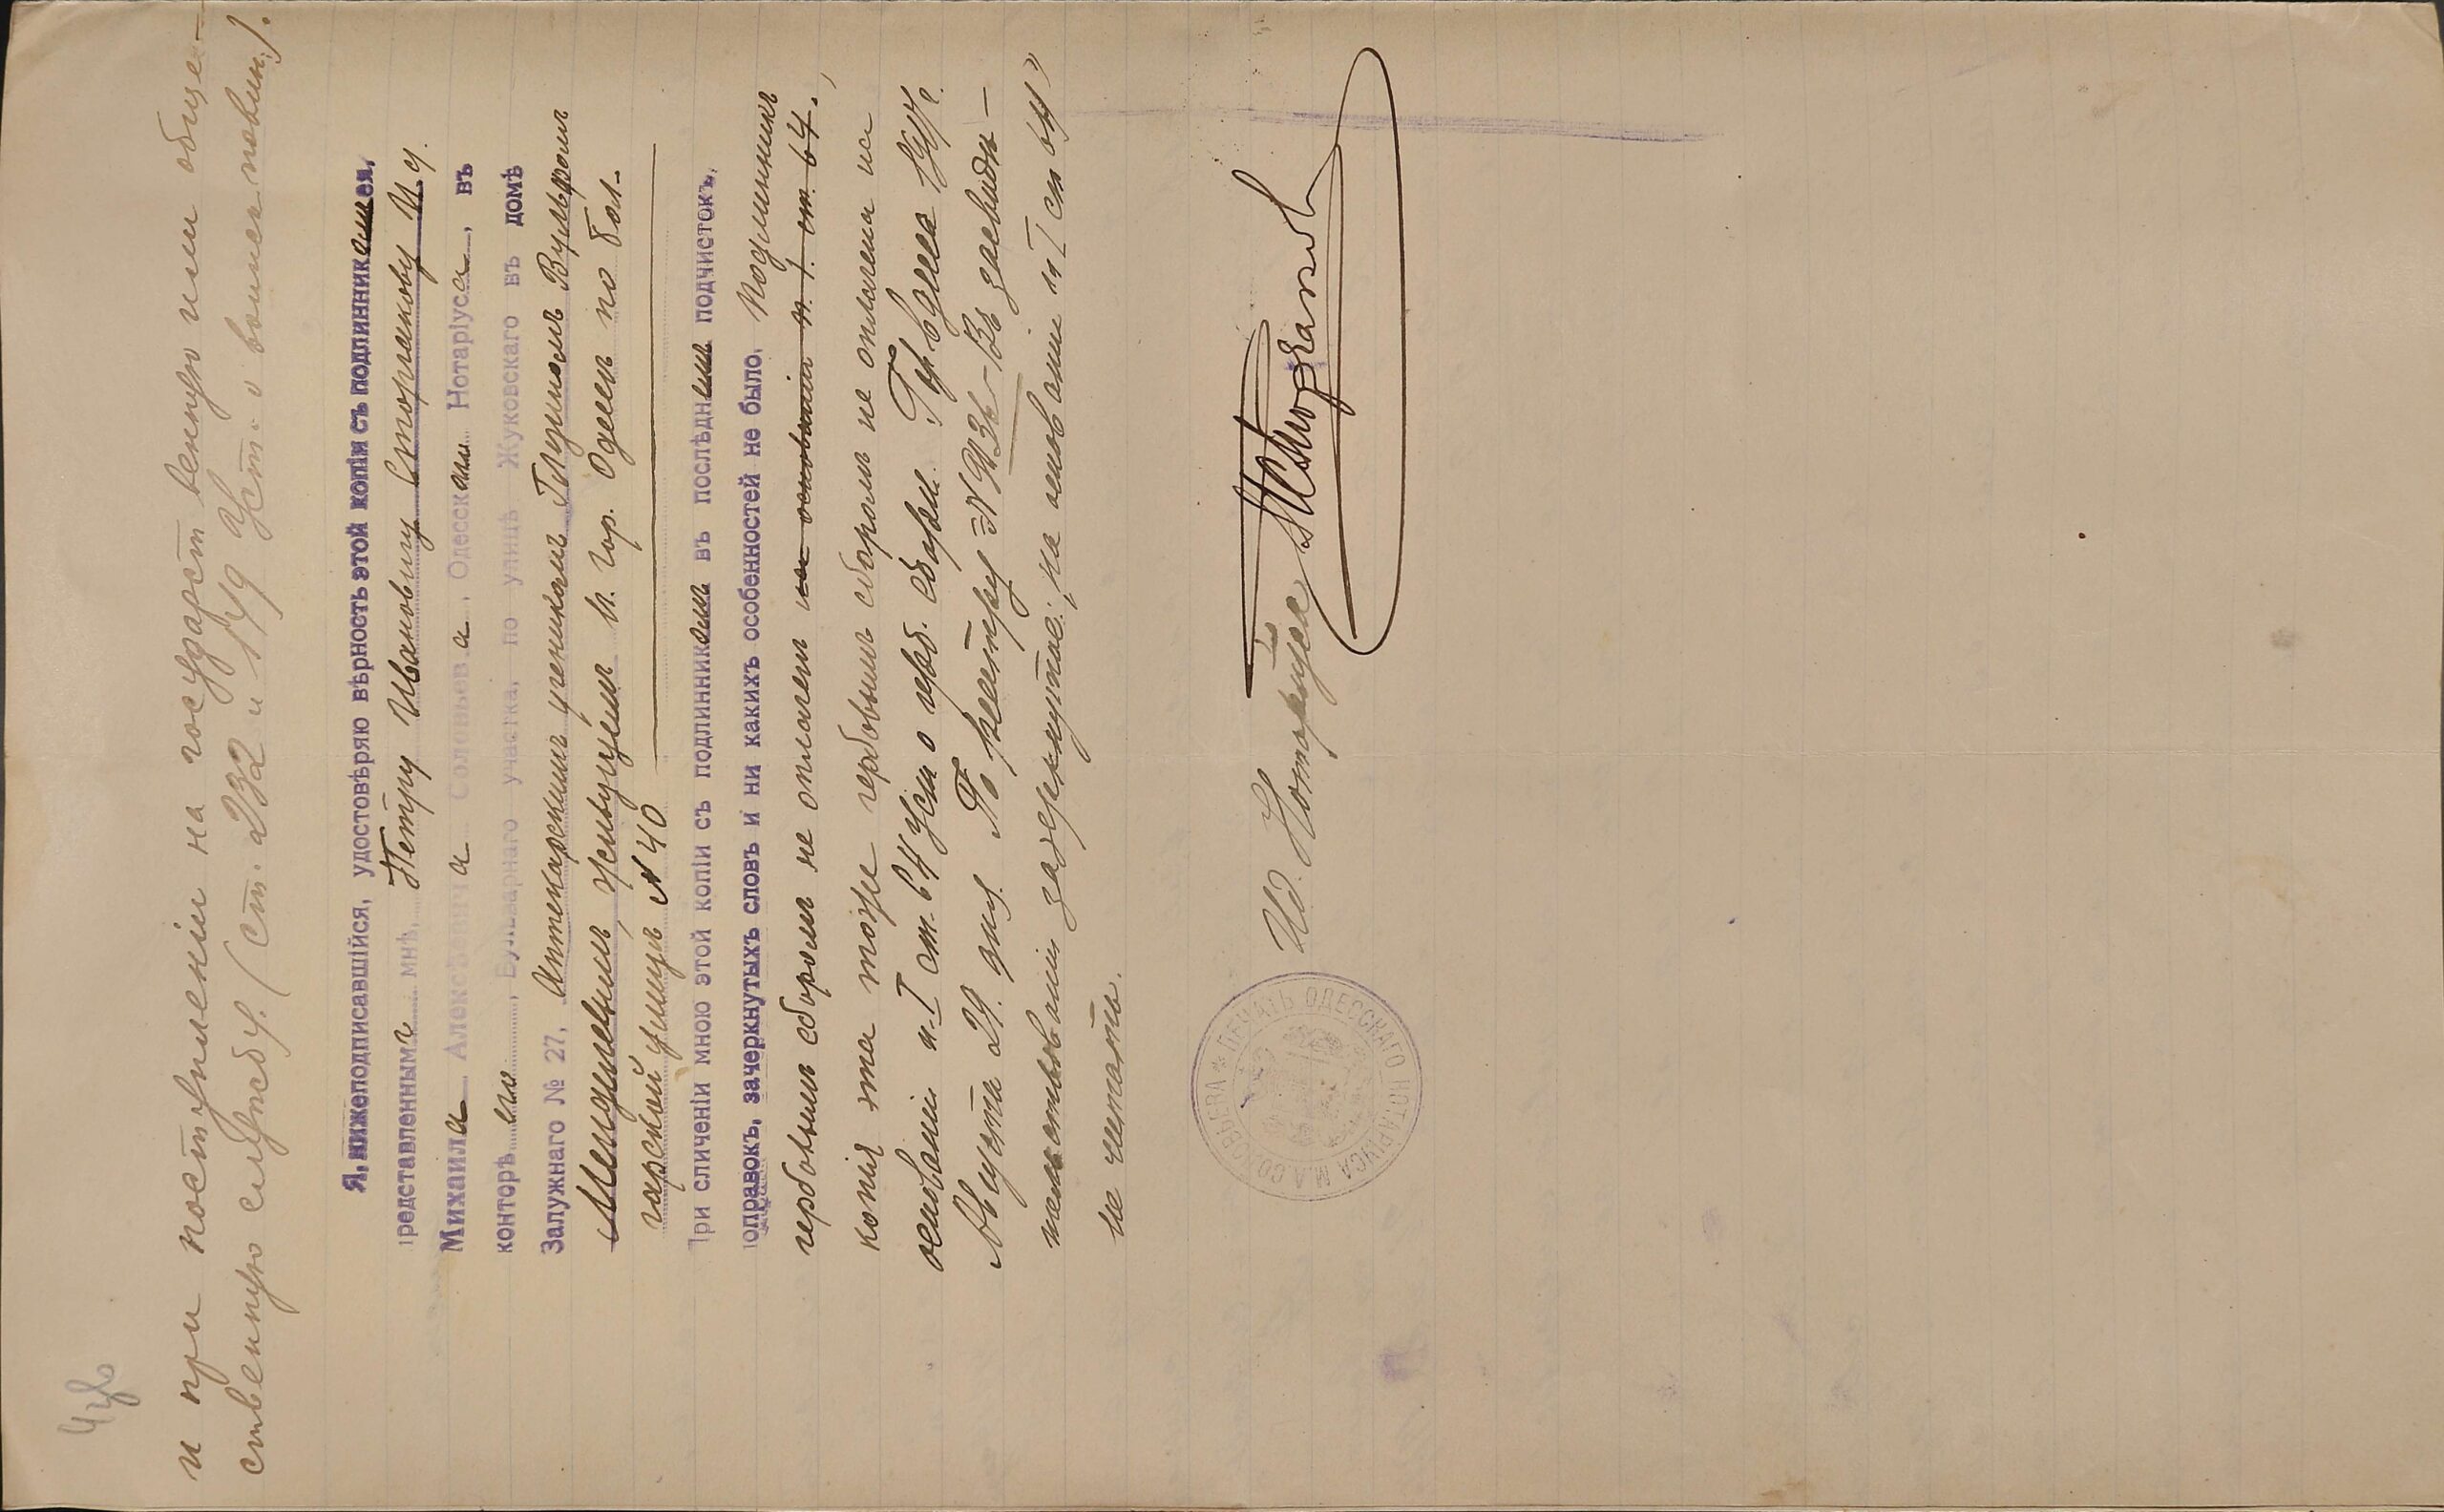 и при поступленіи на государственную или обще-
ственную службу. (Ст. 232 и 179 Уст. о воинск. повин.).
Я, нижеподписавшійся, удостовѣряю вѣрность этой копіи съ подлинник
представленнымъ мнѣ, Петру Ивановичу Сторчакову И. д.
Михаила Алексѣевича Соловьева, Одесскаго Нотаріуса, въ
конторѣ его, Бульварнаго участка, по улицѣ Жуковскаго въ домѣ
Залужнаго № 27, Аптекарскимъ ученикомъ Вульфомъ
живущимъ въ гор. Одессѣ по Бол-
гарской улицѣ № 40
При сличеніи мною этой копіи съ подлинникомъ въ послѣднемъ подчистокъ,
поправокъ, зачеркнутыхъ словъ и ни какихъ особенностей не было. Подлинникъ
гербовымъ сборомъ не оплаченъ на основаніи п. 1. ст. 64.,
копія эта тоже гербовымъ сборомъ не оплачена на
основаніи п. I ст. 64 Уст. о герб. сборѣ. Гор. Одесса
Августа 29 дня. По реестру № засвидѣ-
тельствованіи зачеркнутое: "на основаніи п I ст 64"
не читать.
И.д. Нотаріуса ПСторчаков
* ПЕЧАТЬ ОДЕССКАГО НОТАРІУСА М.А. СОЛОВЬЕВА